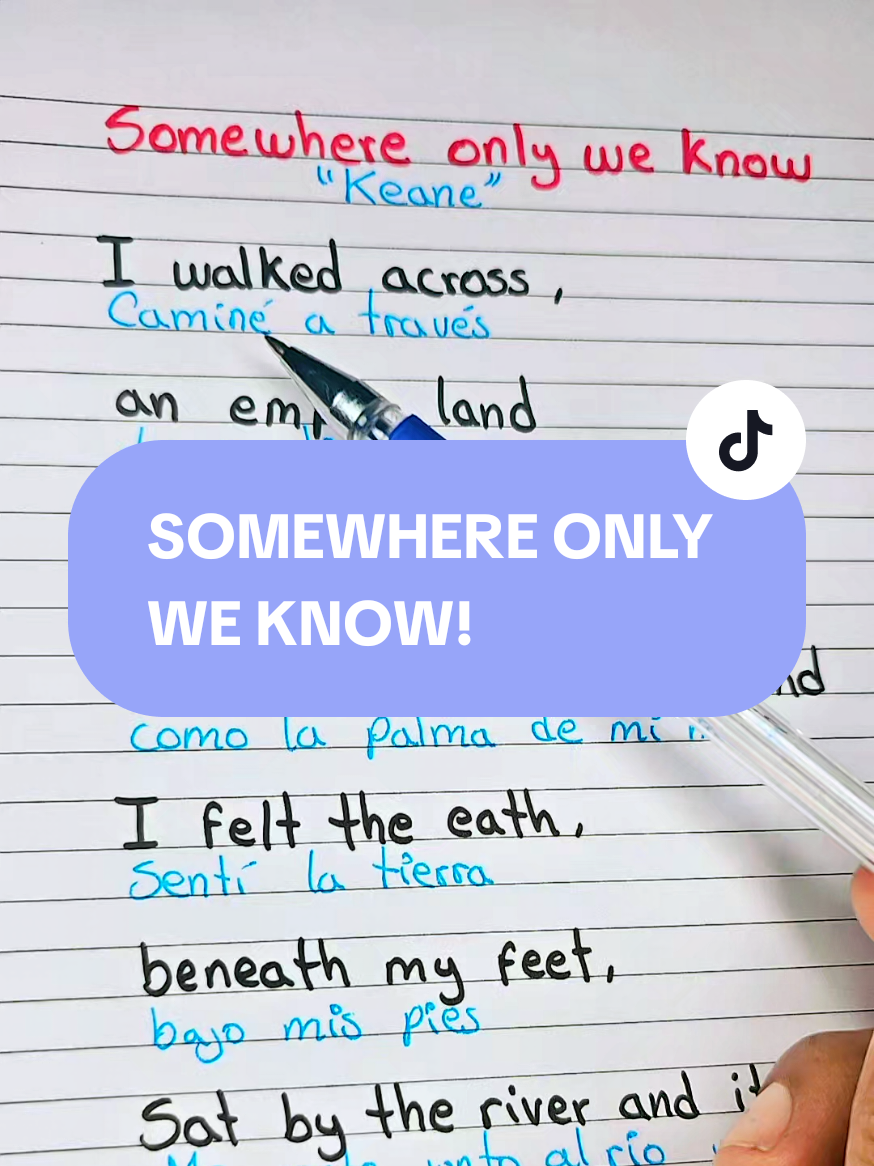 Somewhere only we know
"Keane"
I walked across,
Caminé a través
an land
SOMEWHERE ONLY
WE KNOW!
como la palma de mi
I felt the eath,
Sentí la tierra
beneath my feet,
bajo mis pies
Sat by the river and
al río